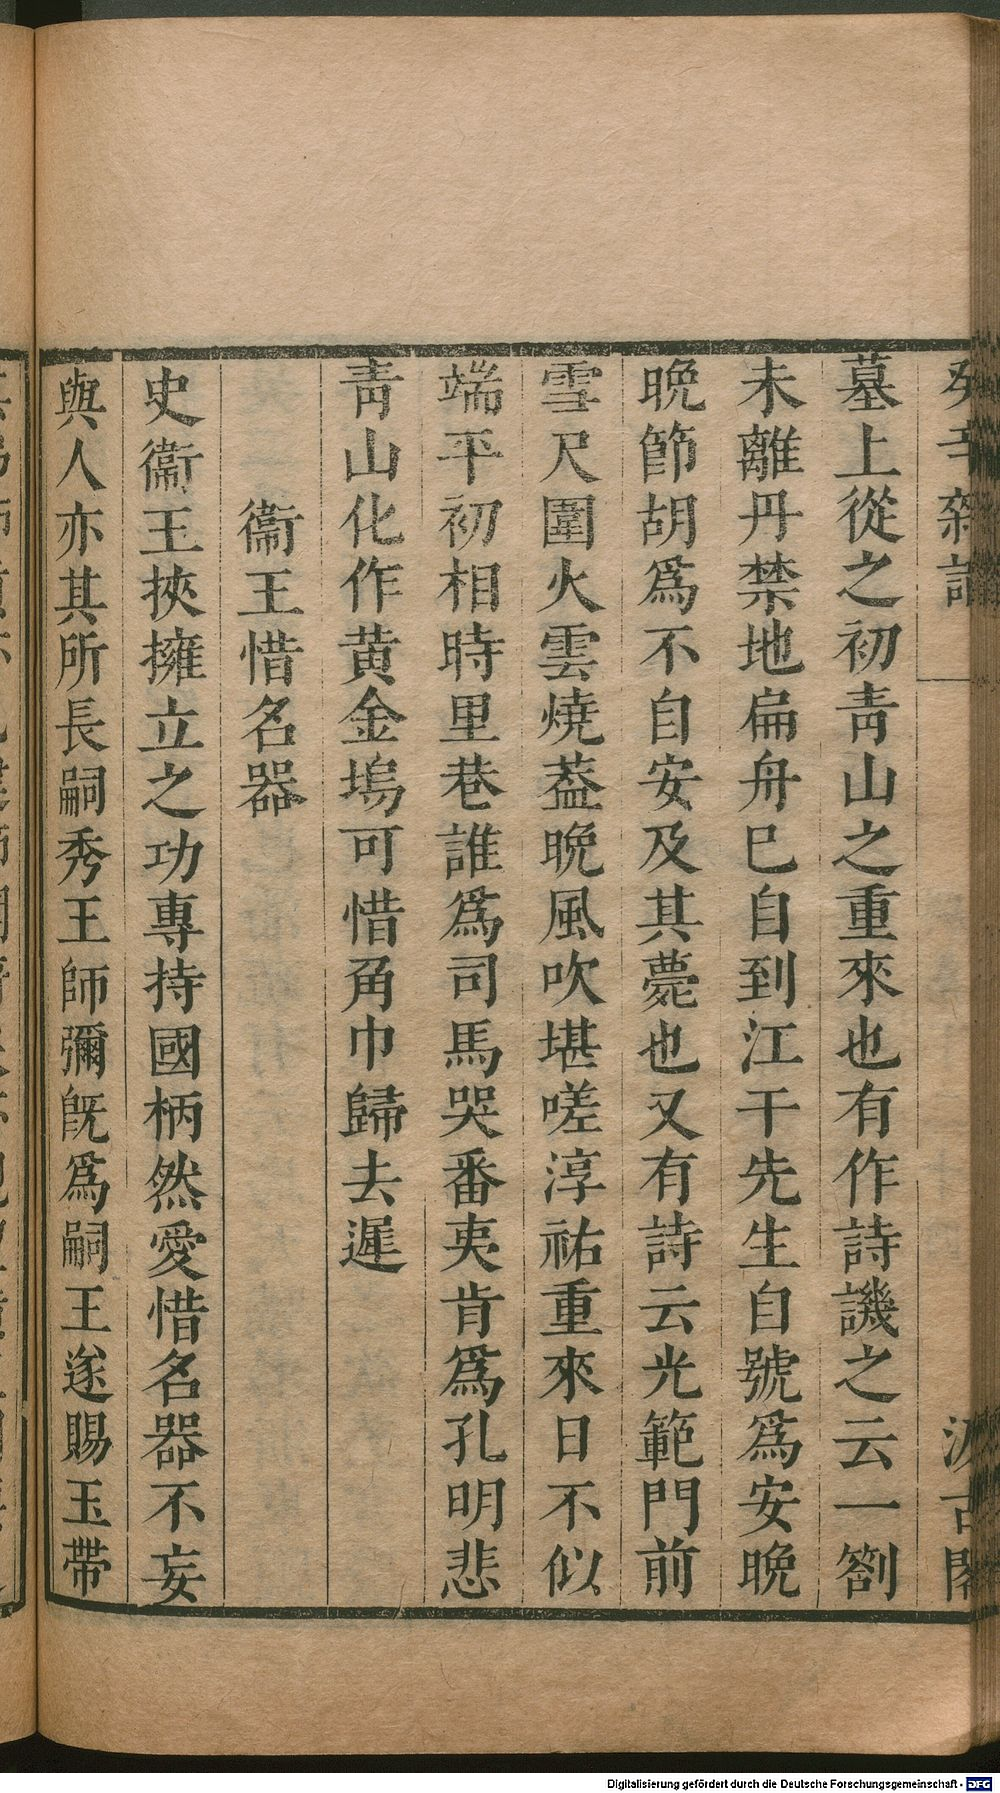 癸辛雜識
汲古閣
墓上從之初靑山之重來也有作詩譏之云一劄
未離丹禁地扁舟巳自到江干先生自號爲安晚
晚節胡爲不自安及其薨也又有詩云光範門前
雪尺圍火雲燒葢晚風吹堪嗟淳祐重來日不似
端平初相時里巷誰爲司馬哭番夷肯爲孔明悲
靑山化作黃金塢可惜角巾歸去遲
衞王惜名器
史衞王挾擁立之功專持國柄然愛惜名器不妄
與人亦其所長嗣秀王師彌旣爲嗣王遂賜玉帶
Digitalisierung gefördert durch die Deutsche Forschungsgemeinschaft - DFG